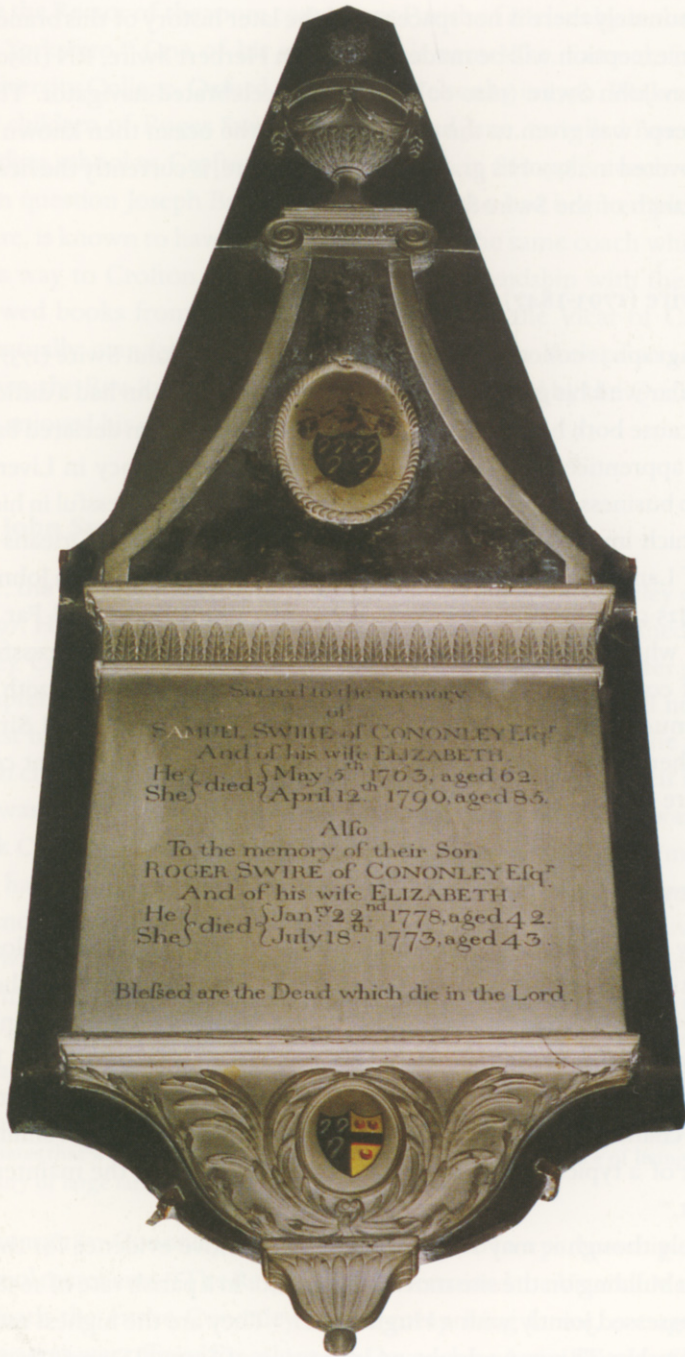 Sacred to the memory
of
SAMUEL SWIRE of CONONLEY Eſqr
And of his wife ELIZABETH.
He } died { May 5th 1763, aged 62.
She } died { April 12th 1790, aged 85.
Alſo
To the memory of their Son
ROGER SWIRE of CONONLEY Eſqr
And of his wife ELIZABETH.
He } died { Janry 22nd 1778, aged 42.
She } died { July 18th 1773, aged 43.
Bleſsed are the Dead which die in the Lord.